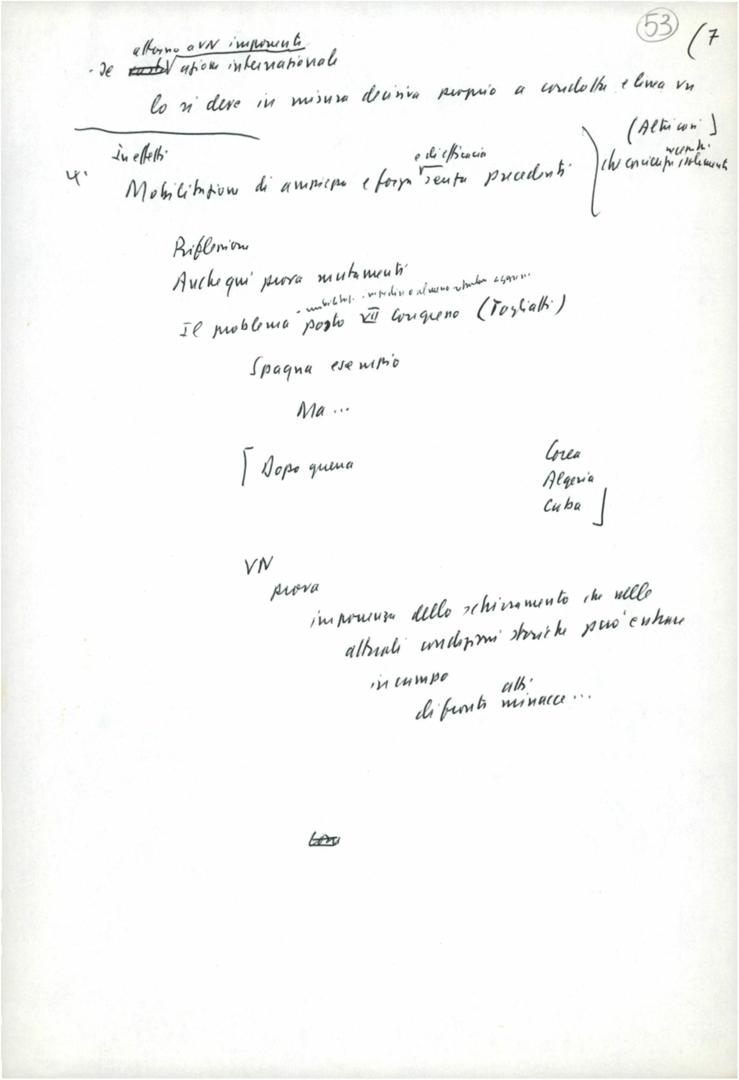 53
(7
attorno a VN imponenti
- Se azione internazionale
lo si deve in misura decisiva proprio a condotta e linea VN
In effetti
e di efficacia
4. Mobilitazione di ampiezza e forza senza precedenti
(Altri casi)
Riflessione
Anche qui prova mutamenti
Il problema posto VII congresso (Togliatti)
Spagna esempio
Ma ...
[ Dopo guerra
Corea
Algeria
Cuba ]
VN
prova
imponenza dello schieramento che nelle
attuali condizioni storiche può entrare
in campo
di fronte atti minacce ...